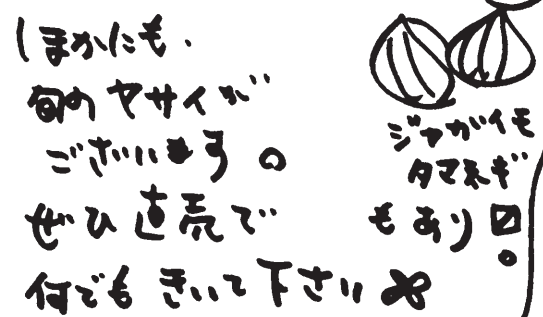 ほかにも、
旬のヤサイが
ございます。
ぜひ直売で
何でもきいて下さい
ジャガイモ
タマネギ
もあり〼。